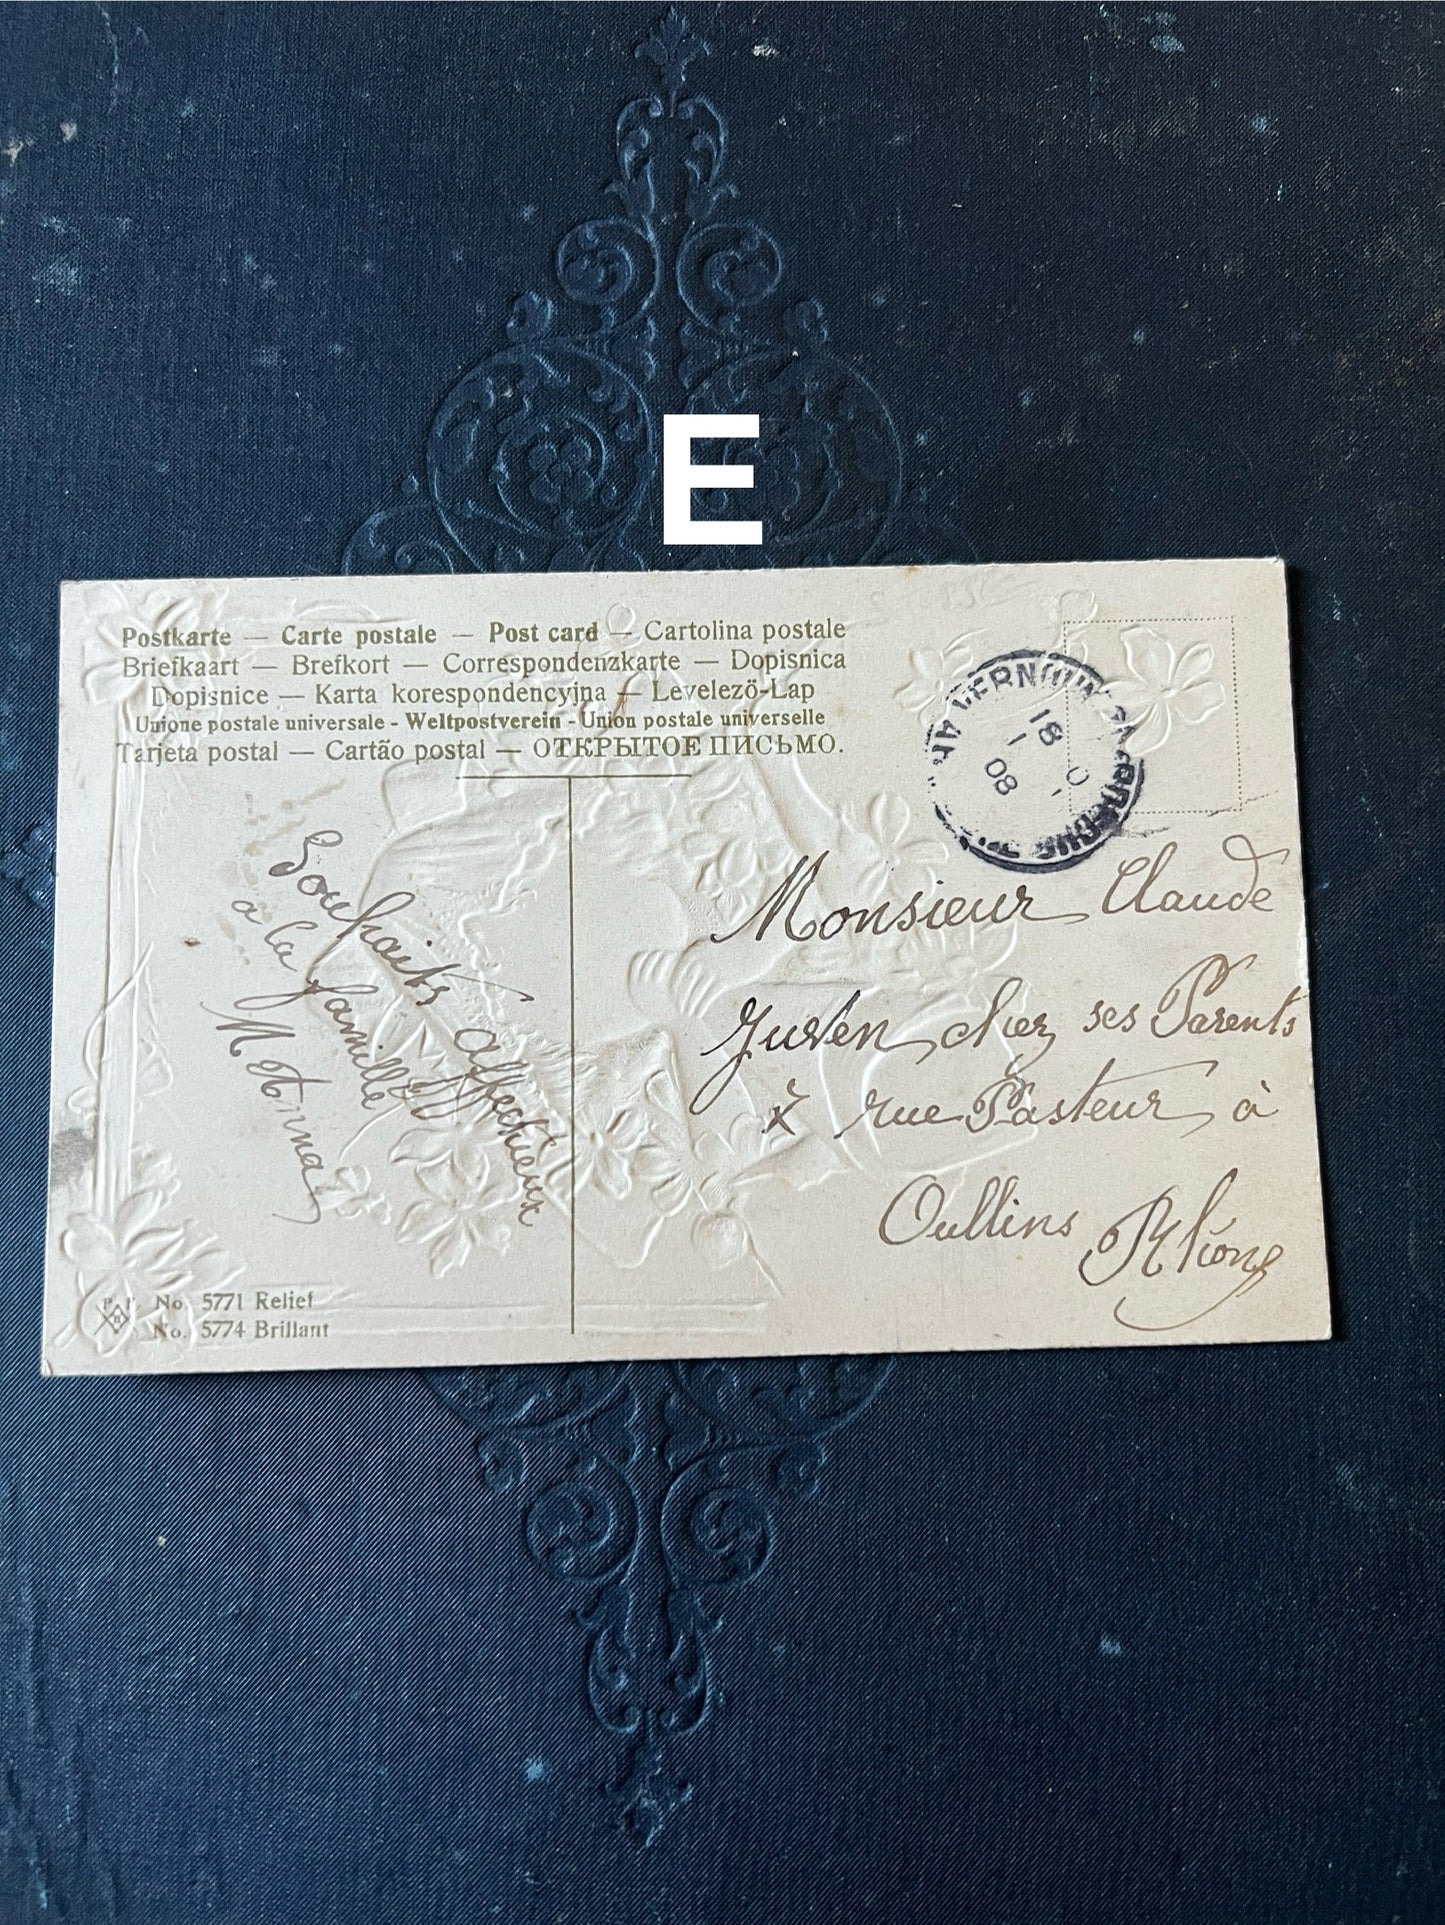 E
Postkarte — Carte postale — Post card — Cartolina postale
Briefkaart — Brefkort — Correspondenzkarte — Dopisnica
Dopisnice — Karta korespondencyjna — Levelező-Lap
Unione postale universale - Weltpostverein - Union postale universelle
Tarjeta postal — Cartão postal — ОТКРЫТОЕ ПИСЬМО.
18
1
08
Souhaits affectueux
a la famille
Monsieur Claude
chez ses Parents
7 rue Pasteur à
Oullins Rhône
No. 5771 Relief
No. 5774 Brillant